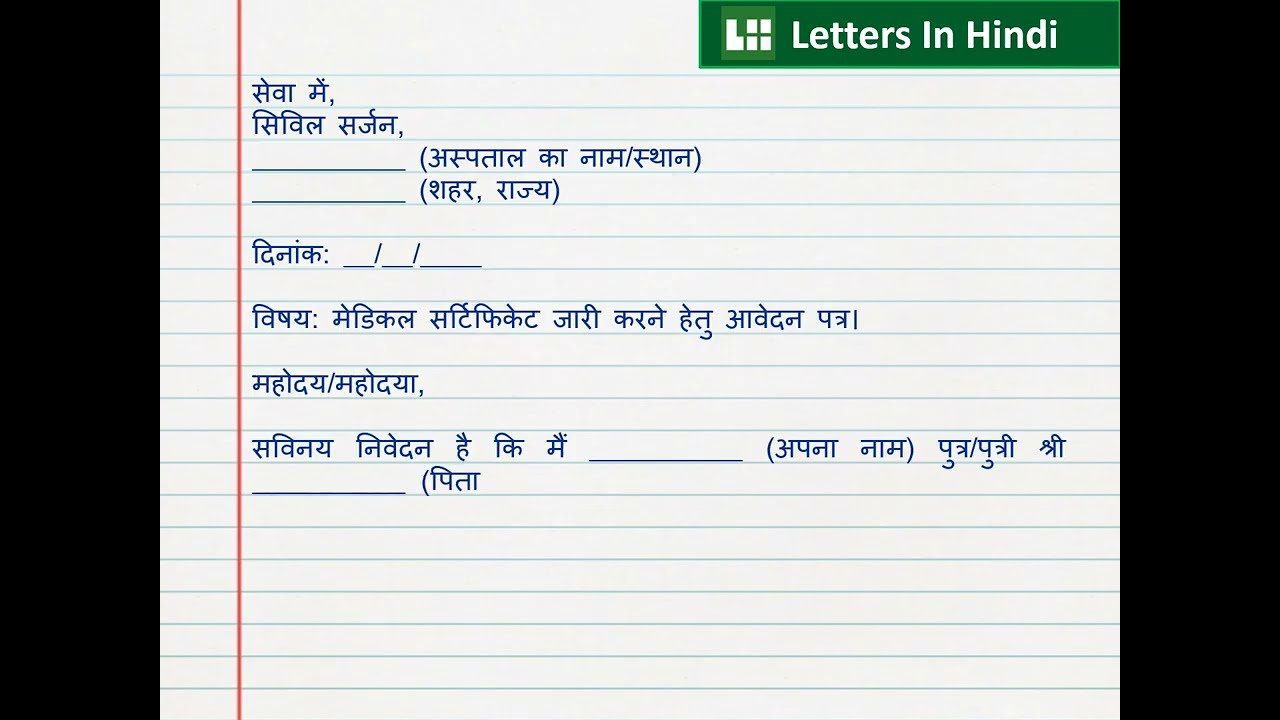 Letters In Hindi
सेवा में,
सिविल सर्जन,
___________ (अस्पताल का नाम/स्थान)
___________ (शहर, राज्य)
दिनांक: __/__/____
विषय: मेडिकल सर्टिफिकेट जारी करने हेतु आवेदन पत्र।
महोदय/महोदया,
सविनय निवेदन है कि मैं ___________ (अपना नाम) पुत्र/पुत्री श्री
___________ (पिता